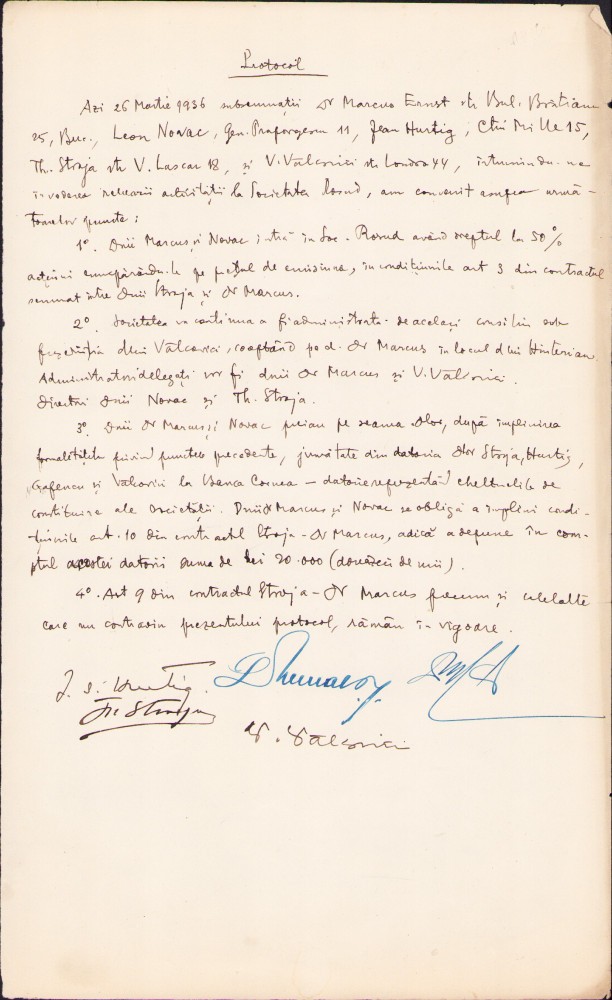 Protocol
Azi 26 Martie 1936 subsemnații Dr Marcus Ernst str Bul. Brătianu
25, Buc., Leon Novac, Gen. Praporgescu 11, Jean Hurtig, Ctin Mille 15,
Th. Stroja str V. Lascar 18, și V. Vâlcovici str Londra 44, întrunindu-ne
în vederea reluării activității la Societatea Rosud, am convenit asupra urmă-
toarelor puncte:
1º. Dnii Marcus și Novac intră în Soc. Rosud având dreptul la 50%
acțiuni cumpărându-le pe prețul de emisiune, în condițiunile art 3 din contractul
semnat între Dnii Stroja și Dr Marcus.
2º. Societatea va continua a fi administrată de același consiliu sub
președinția dlui Vâlcovici, cooptând pe d. Dr Marcus în locul dlui
Administratori delegați vor fi dnii Dr Marcus și V. Vâlcovici.
Directori Dnii Novac și Th. Stroja.
3º. Dnii Dr Marcus și Novac preiau pe seama Dlor, după îndeplinirea
formalităților privind punctele precedente, jumătate din datoria Dlor Stroja, Hurtig,
Gafencu și Vâlcovici la Banca Cornea – datorie reprezentând cheltuelile de
constituire ale societății. Dnii Dr Marcus și Novac se obligă a împlini condi-
țiunile art. 10 din contractul Stroja - Dr Marcus, adică a depune în con-
tul acestei datorii suma de lei 20.000 (douăzeci de mii).
4º. Art 9 din contractul Stroja – Dr Marcus precum și celelalte
care nu contrazic prezentului protocol, rămân în vigoare.
J. S. Hurtig
Th. Stroja
V. Vâlcovici